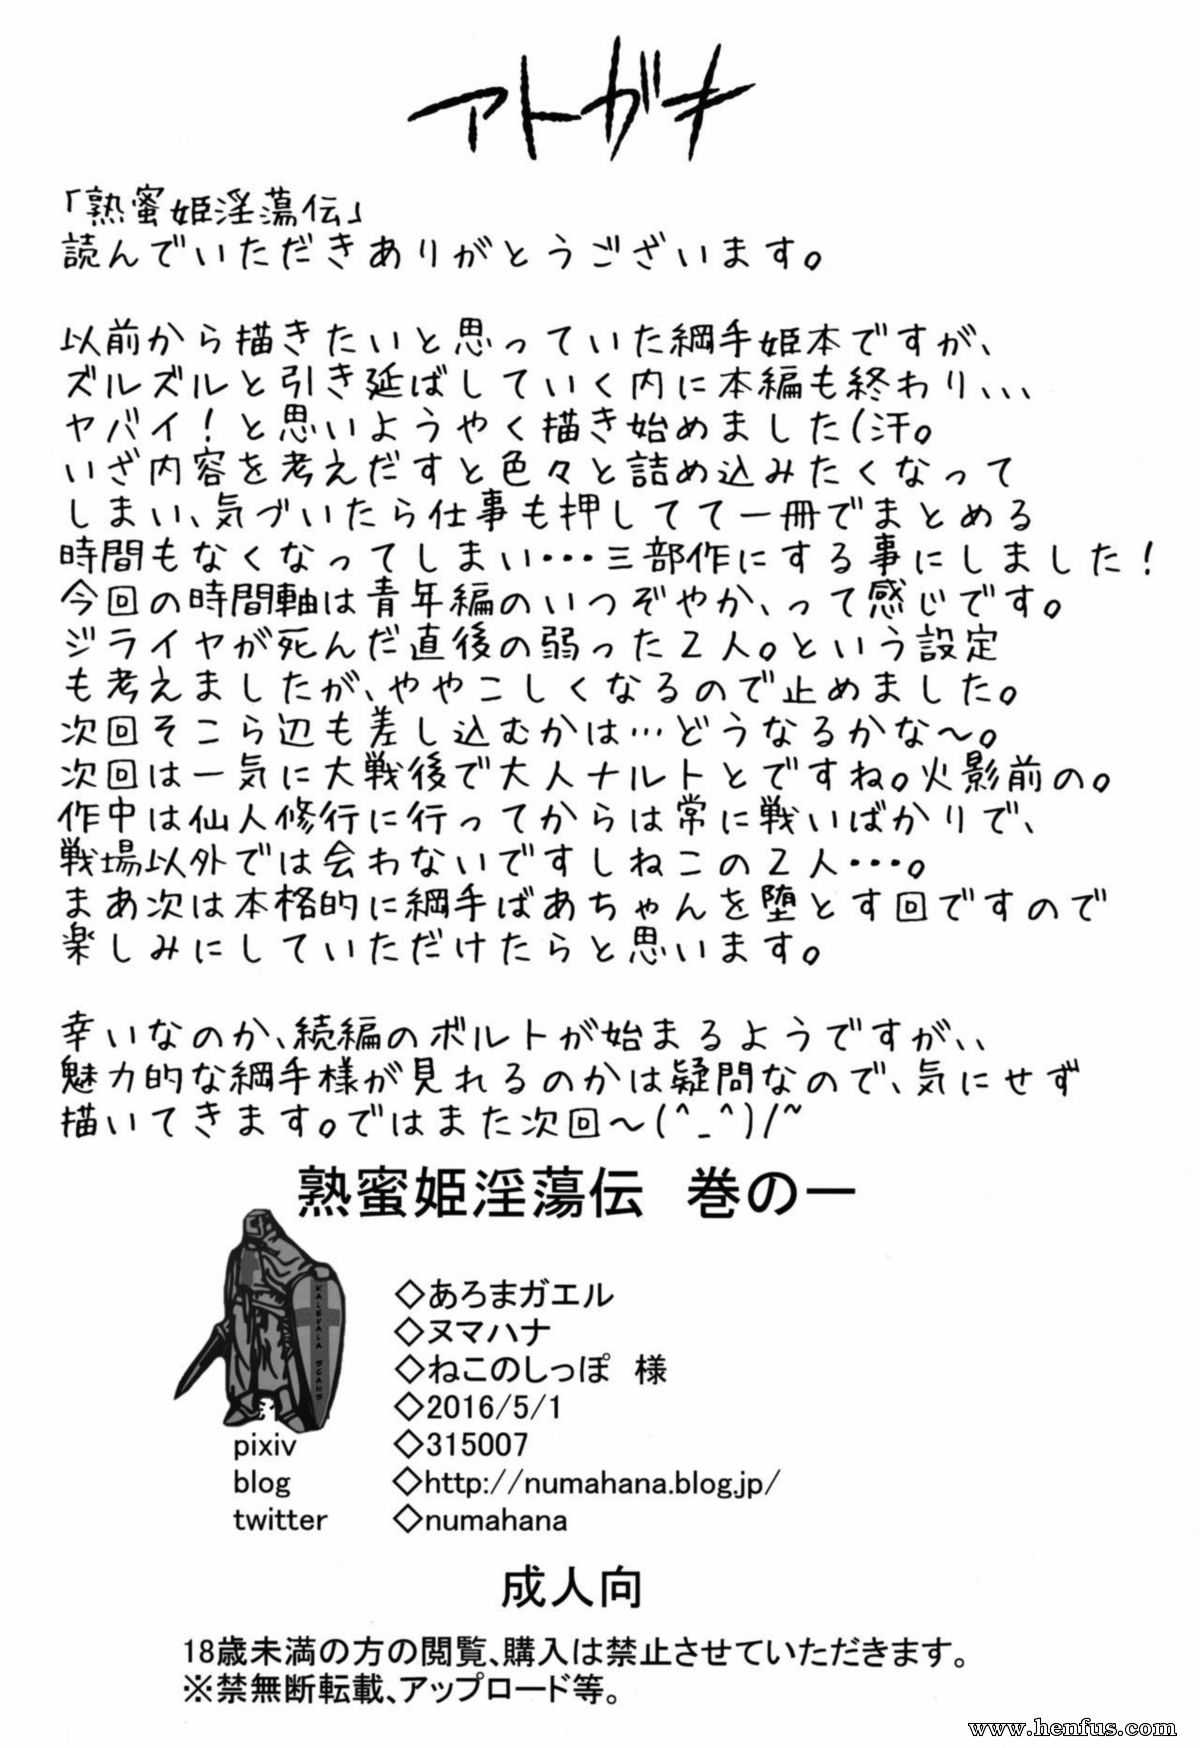 アトガキ
「熟蜜姫淫蕩伝」
読んでいただきありがとうございます。
以前から描きたいと思っていた綱手姫本ですが、
ズルズルと引き延ばしていく内に本編も終わり、、、
ヤバイ!と思いようやく描き始めました(汗。
いざ内容を考えだすと色々と詰め込みたくなって
しまい、気づいたら仕事も押してて一冊でまとめる
時間もなくなってしまい・・・三部作にする事にしました!
今回の時間軸は青年編のいつぞやか、って感じです。
ジライヤが死んだ直後の弱った2人。という設定
も考えましたが、ややこしくなるので止めました。
次回そこら辺も差し込むかは…どうなるかな～。
次回は一気に大戦後で大人ナルトとですね。火影前の。
作中は仙人修行に行ってからは常に戦いばかりで、
戦場以外では会わないですしねこの2人・・・。
まあ次は本格的に綱手ばあちゃんを堕とす回ですので
楽しみにしていただけたらと思います。
幸いなのか、続編のボルトが始まるようですが、、
魅力的な綱手様が見れるのかは疑問なので、気にせず
描いてきます。ではまた次回～(^_^)/~
熟蜜姫淫蕩伝 巻の一
◇あろまガエル
◇ヌマハナ
◇ねこのしっぽ 様
◇2016/5/1
pixiv ◇315007
blog ◇http://numahana.blog.jp/
twitter ◇numahana
KALEVALA SCANS
成人向
18歳未満の方の閲覧、購入は禁止させていただきます。
※禁無断転載、アップロード等。
www.henfus.com